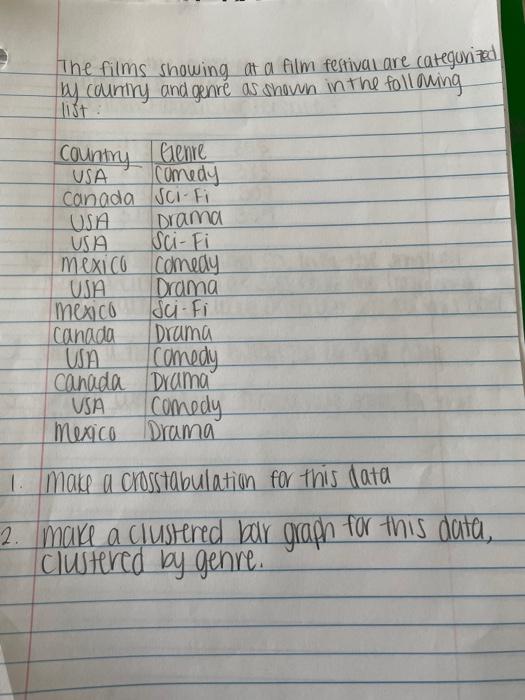 The films showing at a film festival are categorized
by country and genre as shown in the following
list:
Country Genre
USA Comedy
Canada Sci-Fi
USA Drama
USA Sci-Fi
Mexico Comedy
USA Drama
Mexico Sci-Fi
Canada Drama
USA Comedy
Canada Drama
USA Comedy
Mexico Drama
1. Make a crosstabulation for this data
2. Make a clustered bar graph for this data,
clustered by genre.